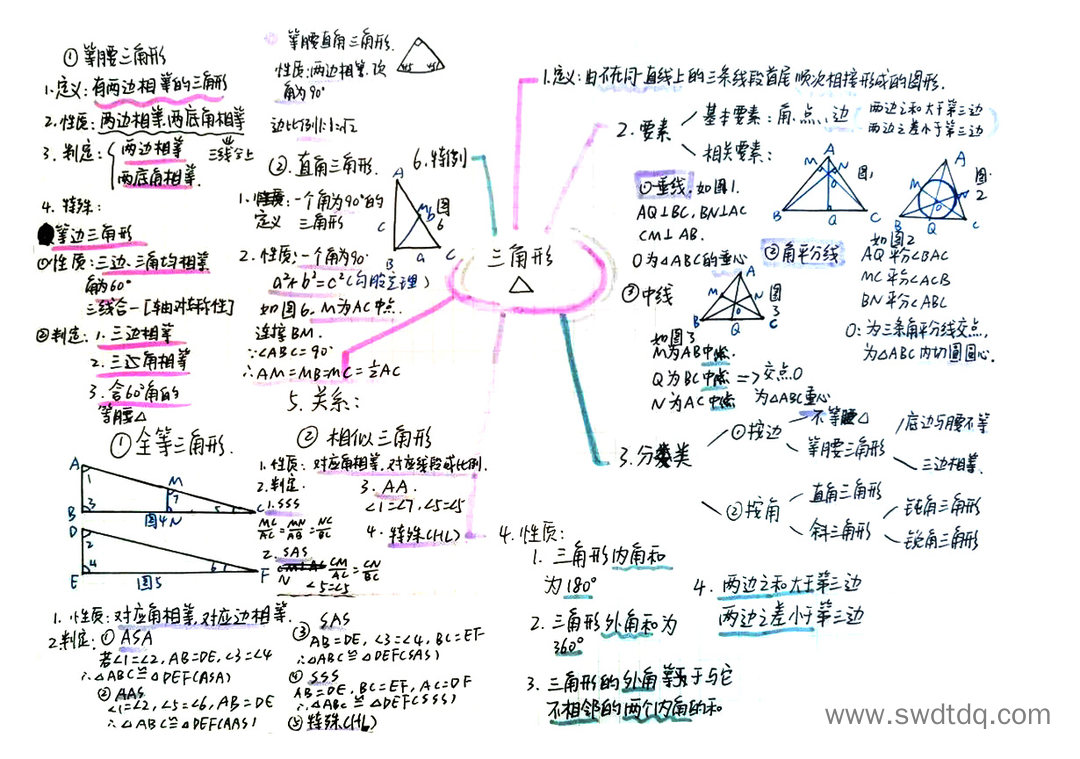 三角形
△
1.定义:由不在同一直线上的三条线段首尾顺次相接形成的图形.
2.要素
基本要素:角、点、边
两边之和大于第三边
两边之差小于第三边
相关要素:
①垂线.如图1.
AQ⊥BC,BN⊥AC
CM⊥AB.
O为△ABC的垂心
A
M
N
O
B
Q
C
图1
A
M
N
O
B
Q
C
图2
②角平分线
如图2
AQ平分∠BAC
MC平分∠ACB
BN平分∠ABC
O:为三条角平分线交点,
为△ABC内切圆圆心.
③中线
A
M
N
O
B
Q
C
图3
如图3
M为AB中点.
Q为BC中点 => 交点O
N为AC中点 为△ABC重心
3.分类
①按边
不等腰△
等腰三角形
底边与腰不等
三边相等.
②按角
直角三角形
斜三角形
钝角三角形
锐角三角形
4.性质:
1.三角形内角和
为180°
2.三角形外角和为
360°
3.三角形的外角等于与它
不相邻的两个内角的和
4.两边之和大于第三边
两边之差小于第三边
5.关系:
①全等三角形.
A
1
M
7
B
3
N
5
C
图4
D
2
E
4
6
F
图5
1.性质:对应角相等,对应边相等.
2.判定:①ASA
若∠1=∠2,AB=DE,∠3=∠4
∴△ABC≌△DEF(ASA)
②AAS
∠1=∠2,∠5=∠6,AB=DE
∴△ABC≌△DEF(AAS)
③SAS
AB=DE,∠3=∠4,BC=EF
∴△ABC≌△DEF(SAS)
④SSS
AB=DE,BC=EF,AC=DF
∴△ABC≌△DEF(SSS)
⑤特殊(HL)
②相似三角形
1.性质:对应角相等,对应线段成比例.
2.判定.
1.SSS
MC/AC=MN/AB=NC/BC
2.SAS
CM/AC=CN/BC
∠5=∠5
3.AA.
∠1=∠7,∠5=∠5
4.特殊(HL)
6.特例
①等腰三角形
1.定义:有两边相等的三角形
2.性质:两边相等.两底角相等
三线合一
3.判定:两边相等
两底角相等.
4.特殊:
等边三角形
①性质:三边、三角均相等
角为60°
三线合一[轴对称性]
②判定:1.三边相等
2.三角相等
3.含60°角的
等腰△
等腰直角三角形.
性质:两边相等.顶
角为90°
边比例1:1:√2
45°
45°
②.直角三角形.
1.定义:一个角为90°的
三角形
2.性质:一个角为90°
a²+b²=c²(勾股定理)
如图6,M为AC中点.
连接BM.
∵∠ABC=90°
∴AM=MB=MC=½AC
A
M
b
c
B
a
C
图6
www.swdtdq.com